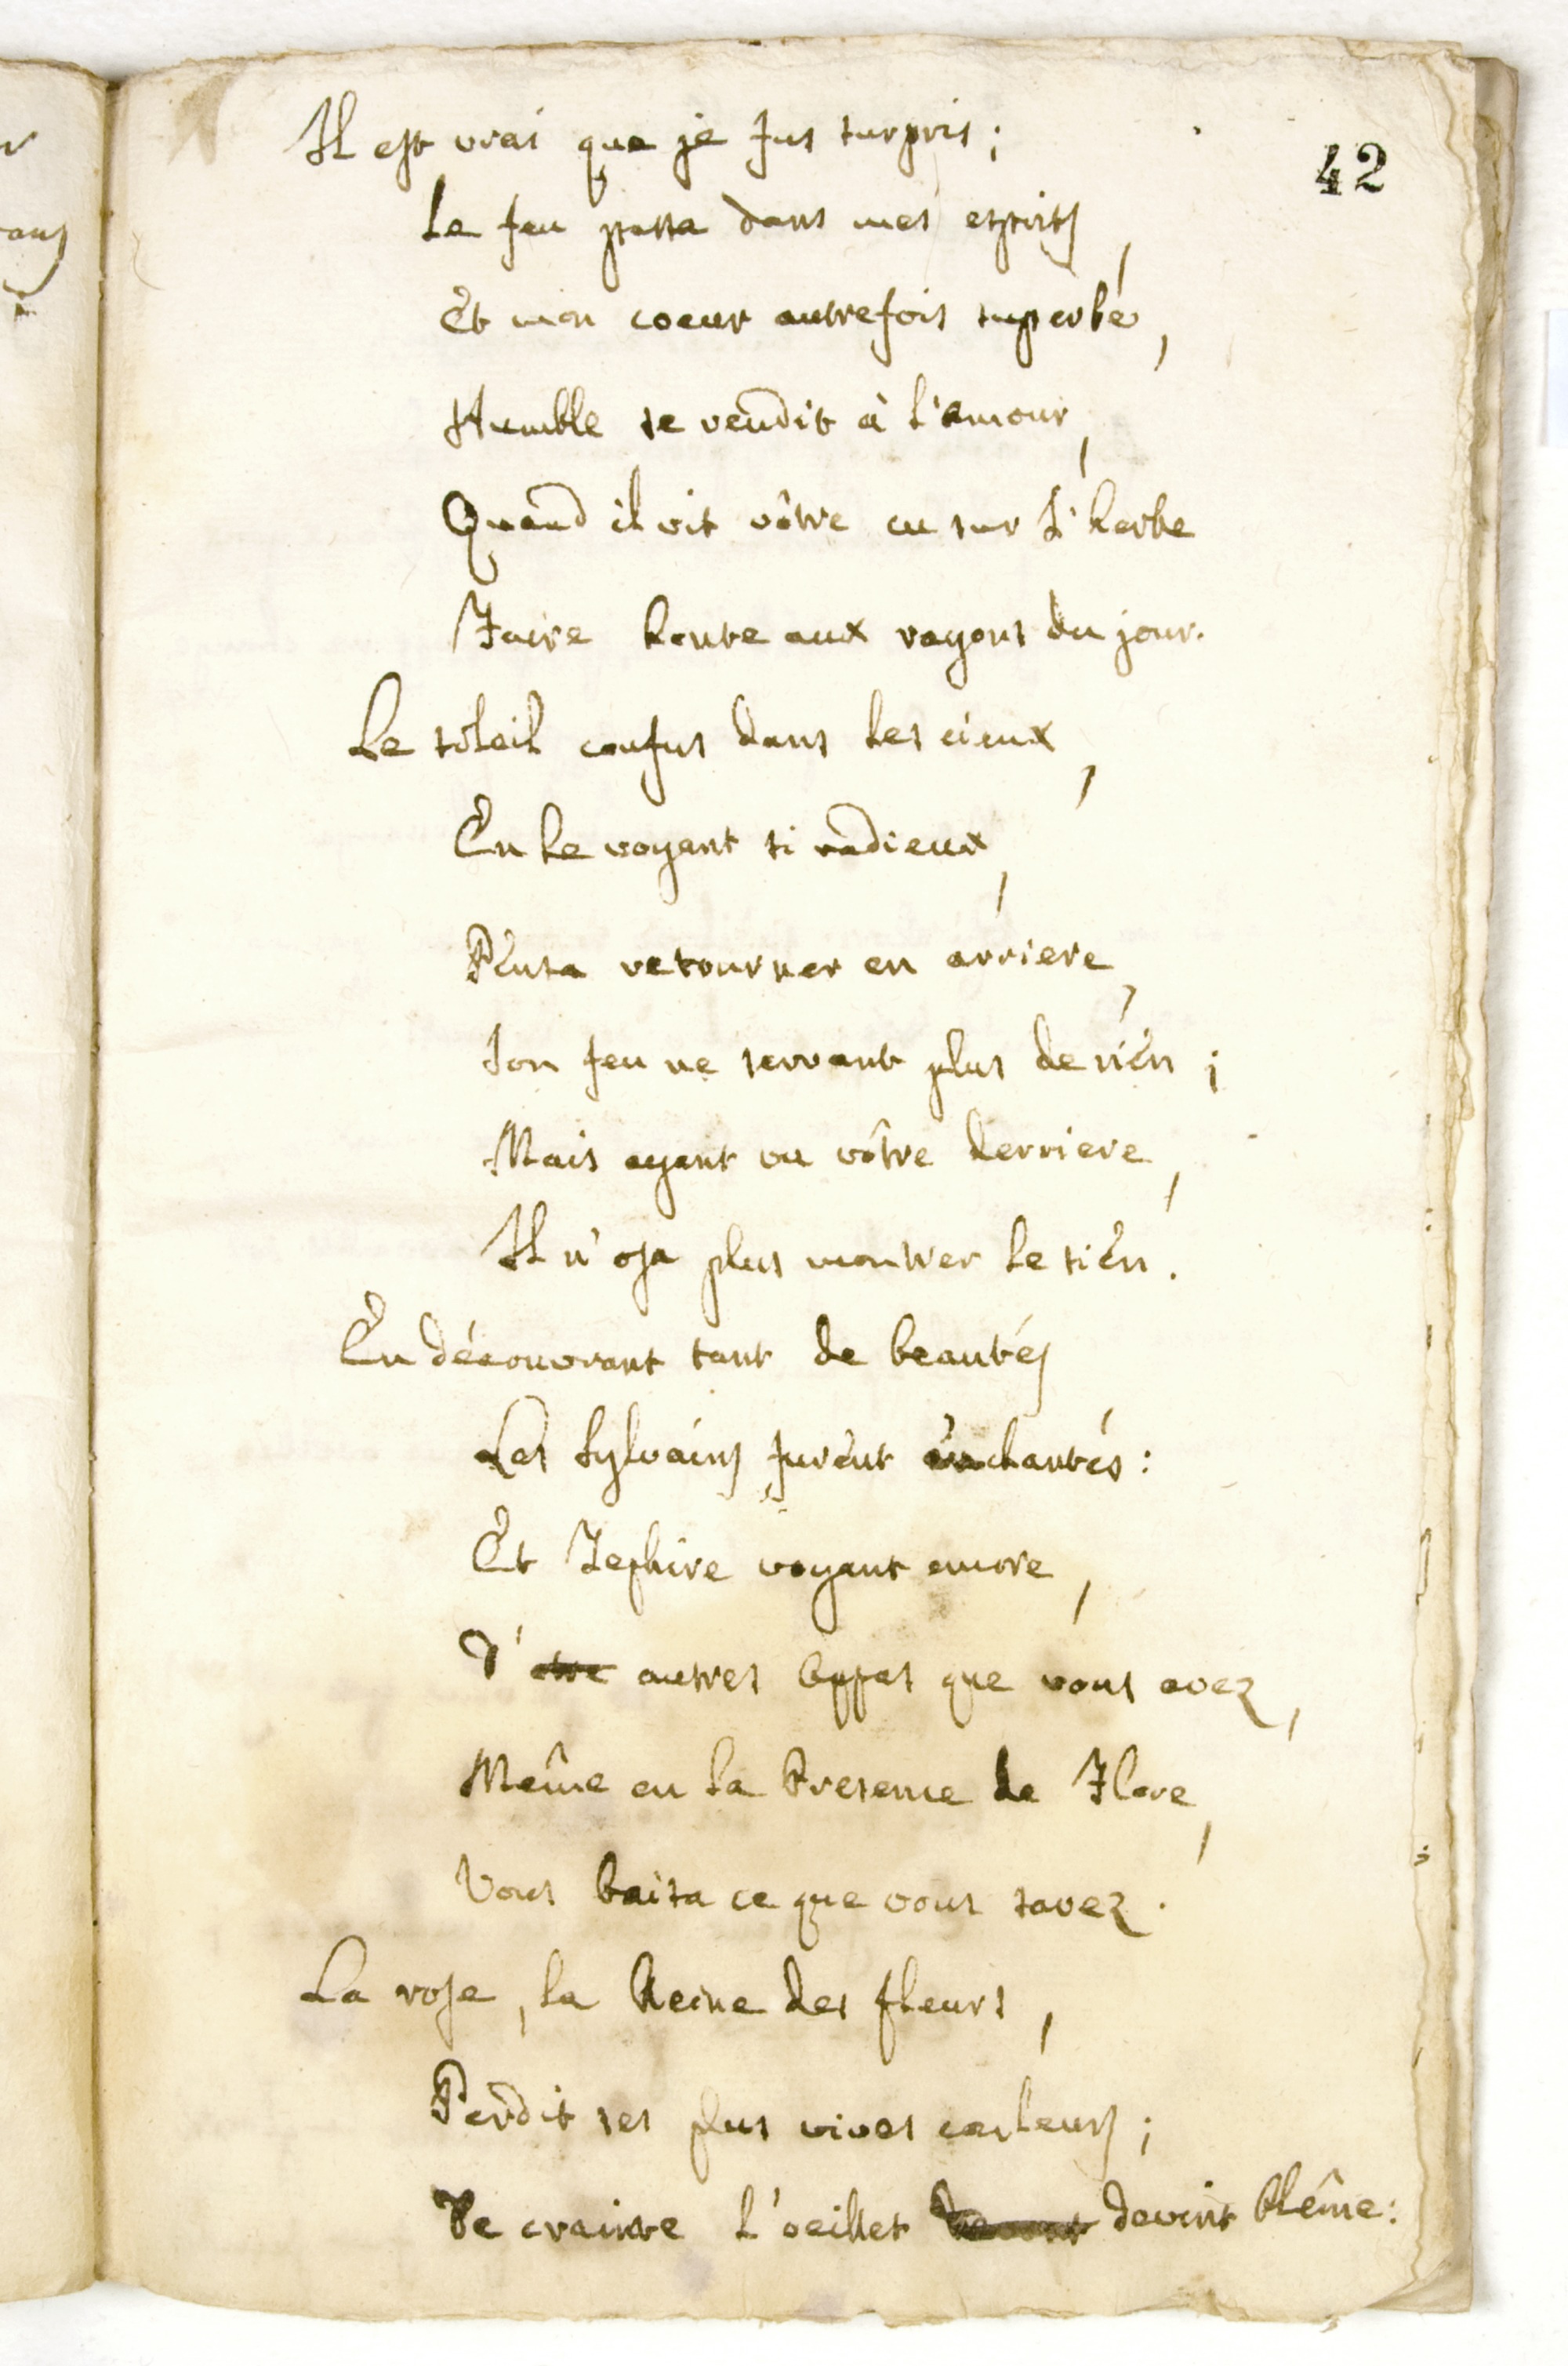 42
Il est vrai que je fus surpris ;
Le feu passa dans mes esprits,
Et mon coeur autrefois superbe,
Humble se rendit à l'amour,
Quand il vit vôtre cu sur l'herbe
Faire honte aux rayons du jour.
Le soleil confus dans les cieux,
En le voyant si radieux,
Pensa retourner en arriere,
Son feu ne servant plus de rien ;
Mais ayant vu vôtre derriere,
Il n'osa plus montrer le sien.
En découvrant tant de beautés
Les Sylvains furent enchantés :
Et Zephire voyant encore,
D'être autres appas que vous avez,
Même en la Presence de Flore,
Vous baisa ce que vous savez.
La rose, la Reine des fleurs,
Perdit ses plus vives couleurs ;
De crainte l'oeillet devint blême :